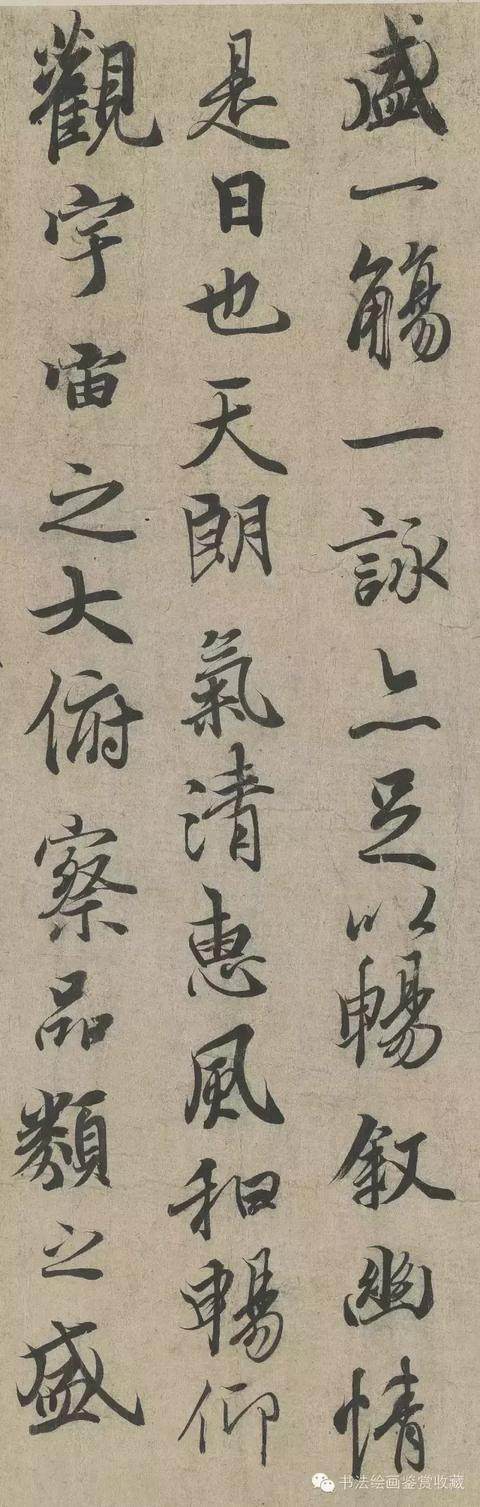 盛一觴一詠亦足以暢敘幽情
是日也天朗氣清惠風和暢仰
觀宇宙之大俯察品類之盛
书法绘画鉴赏收藏